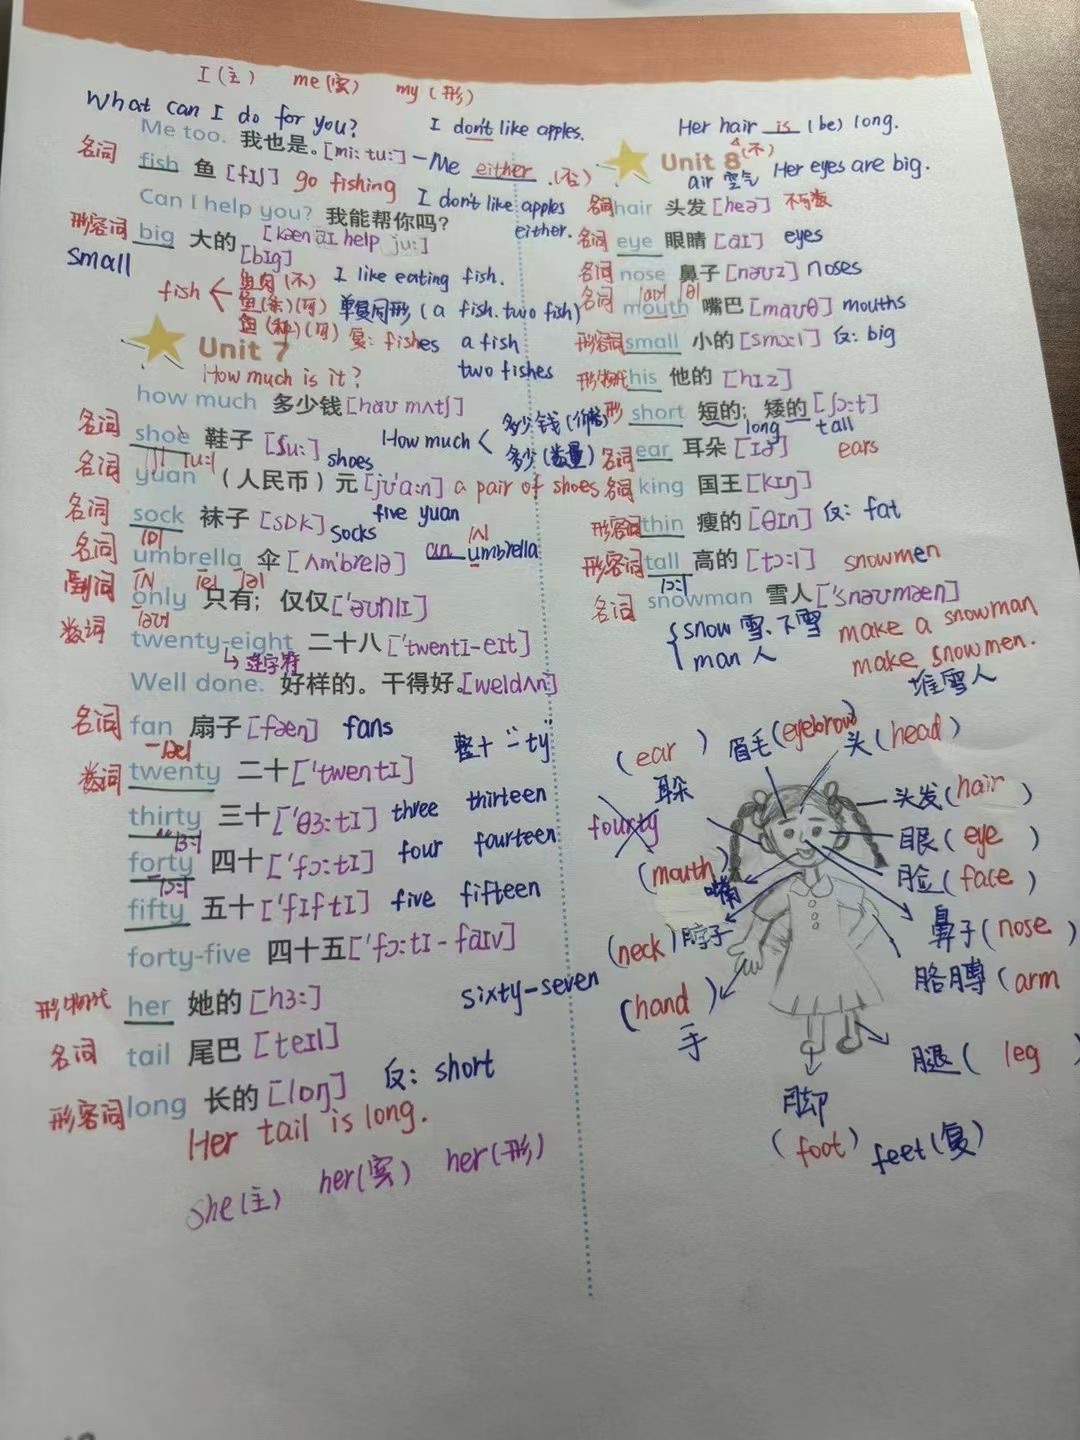 I(主) me(宾) my(形)
What can I do for you?
I don't like apples.
Me too. 我也是。[mi: tu:] — Me either.(否)
名词 fish 鱼 [fɪʃ] go fishing
I don't like apples either.
Can I help you? 我能帮你吗?
[kæn aɪ help ju:]
形容词 big 大的 [bɪg]
small
fish
鱼肉(不) I like eating fish.
鱼(条)(可) 单复同形(a fish. two fish)
鱼(种)(可) 复: fishes a fish
two fishes
Unit 7
How much is it?
how much 多少钱 [haʊ mʌtʃ]
How much
多少钱(价格)
多少(数量)
名词 shoe 鞋子 [ʃu:] shoes
|ʃ| |u:|
名词 yuan (人民币)元 [jʊ'ɑ:n] a pair of shoes
five yuan
名词 sock 袜子 [sɒk] socks
|ɒ|
名词 umbrella 伞 [ʌm'brelə] an umbrella
|ʌ| |e| |ə|
|ʌ|
副词 only 只有；仅仅 ['əʊnlɪ]
|əʊ|
数词 twenty-eight 二十八 ['twentɪ-eɪt]
连字符
Well done. 好样的。干得好。[weldʌn]
名词 fan 扇子 [fæn] fans
|æ|
整十 "-ty"
数词 twenty 二十 ['twentɪ]
thirty 三十 ['θɜ:tɪ] three thirteen
|ɜ:|
forty 四十 ['fɔ:tɪ] four fourteen
|ɔ:|
fifty 五十 ['fɪftɪ] five fifteen
forty-five 四十五 ['fɔ:tɪ-faɪv]
sixty-seven
形物代 her 她的 [hɜ:]
名词 tail 尾巴 [teɪl]
形容词 long 长的 [lɒŋ] 反: short
Her tail is long.
she(主) her(宾) her(形)
Her hair is (be) long.
(不)
Unit 8
air 空气 Her eyes are big.
名词 hair 头发 [heə] 不可数
名词 eye 眼睛 [aɪ] eyes
名词 nose 鼻子 [nəʊz] noses
|aʊ| |θ|
名词 mouth 嘴巴 [maʊθ] mouths
形容词 small 小的 [smɔ:l] 反: big
形物代 his 他的 [hɪz]
形 short 短的；矮的 [ʃɔ:t]
long tall
名词 ear 耳朵 [ɪə] ears
名词 king 国王 [kɪŋ]
形容词 thin 瘦的 [θɪn] 反: fat
形容词 tall 高的 [tɔ:l] snowmen
|ɔ:|
名词 snowman 雪人 ['snəʊmæn]
snow 雪、下雪
man 人
make a snowman
make snowmen.
堆雪人
(ear) 眉毛(eyebrow) 头(head)
朵
头发(hair)
fourty
眼(eye)
(mouth) 嘴
脸(face)
鼻子(nose)
(neck) 脖子
胳膊(arm
(hand)
手
腿(leg)
脚
(foot) feet(复)